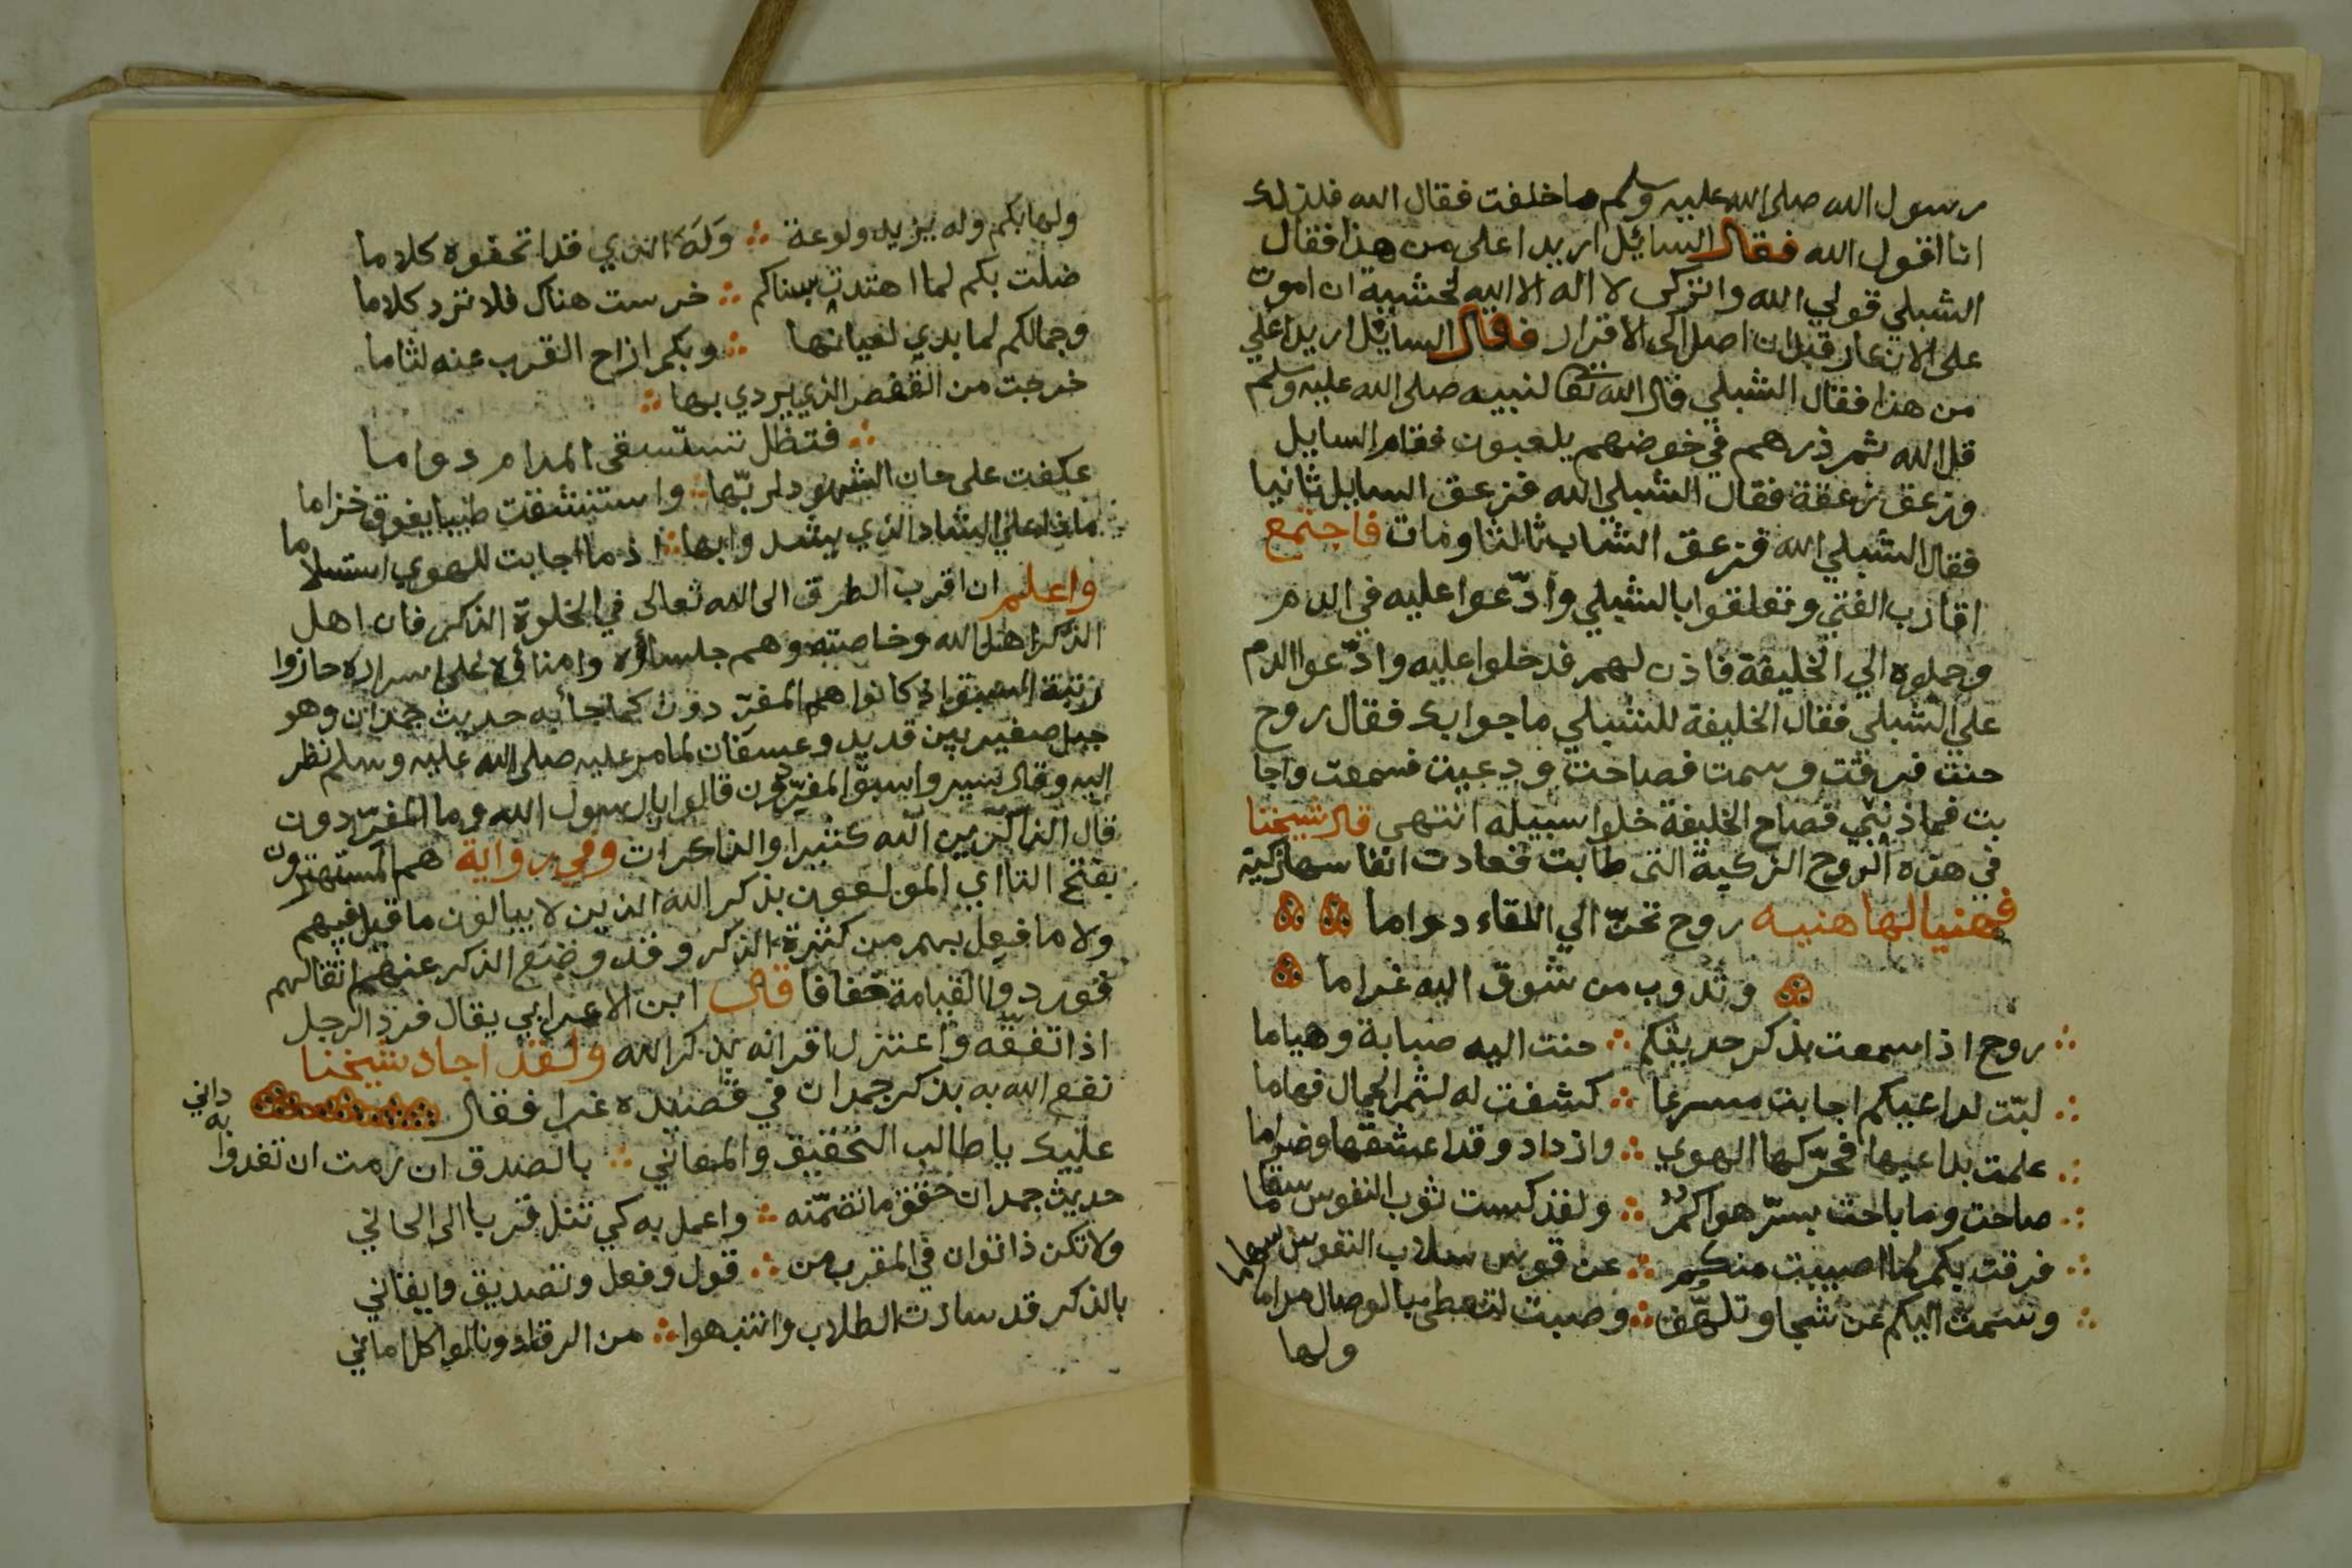 رسول الله صلى الله عليه وسلم ما خلفت فقال الله فلذلك
انا اقول الله فقال السائل اريد اعلى من هذا فقال
الشبلي قولي الله واتركى لا اله الا الله لخشية ان اموت
على الانكار قبل ان اصل الى الاقرار فقال السائل اريد اعلي
من هذا فقال الشبلي قال الله تعا لنبيه صلى الله عليه وسلم
قل الله ثم ذرهم في خوضهم يلعبون فقام السايل
وزعق زعقة فقال الشبلي الله فزعق السايل ثانيا
فقال الشبلي الله فزعق الشاب ثالثا ومات فاجتمع
اقارب الفتي وتعلقوا بالشبلي وادّعوا عليه في الدم
وحملوه الي الخليفة فاذن لهم فدخلوا عليه وادّعوا الدم
علي الشبلي فقال الخليفة للشبلي ما جوابك فقال روح
حنت فرقت وسمت فصاحت ودعيت فسمعت واجا
بت فما ذنبي فصاح الخليفة خلوا سبيله انتهى قال شيخنا
في هذه الروح الزكية التى طابت فعادت انفاسها زكية
فهنيا لها هنيه روح تحنّ الي اللقاء دواما
وتذوب من شوق اليه غراما
روح اذا سمعت بذكر حديثكم ∴ حنت اليه صبابة وهياما
لبّت لداعيكم اجابت مسرعا ∴ كشفت له لثم الجمال فهاما
علمت بداعيها فحرّكها الهوي ∴ وازداد وقدا عشقها وضراما
صاحت وما باحت بسرّ هواكم ∴ ولقد كست ثوب النفوس سقاما
فرقت بكم لما اصيبت منكم ∴ عن قوس سلاب النفوس سهاما
وسمت اليكم عن شجا وتلهّف ∴ وصبت لتحظى بالوصال مراما
ولها
ولها بكم وله يزيد ولوعة ∴ وَلَهَ الذي قدا تحفوه كلاما
ضلت بكم لما اهتدت بسناكم ∴ خرست هناك فلا ترد كلاما
وجمالكم لما بدي لعيانها ∴ وبكم ازاح القرب عنه لثاما
خرجت من القفص الذي يردي بها ∴
∴ فتظل تستسقى المدام دواما
عكفت على حان الشهود لربّها ∴ واستنشقت طيبا يفوق خزاما
ماذا علي الشاد الذي يشد وابها ∴ اذ ما اجابت للهوي استسلاما
واعلم ان اقرب الطرق الى الله تعالى في الخلوة الذكر فان اهل
الذكر اهل الله وخاصته وهم جلساؤه وامناؤه على اسراره حازوا
رتبة السبق اذ كانوا هم المفرّدون كما جأ به حديث جمدان وهو
جبل صغير بين قديد وعسفان لما مر عليه صلى الله عليه وسلم نظر
اليه وقال سيروا سبق المفرّدون قالوا يا رسول الله وما المفرّدون
قال الذاكرين الله كثيرا والذاكرات وفي رواية هم المستهترون
بفتح التااي المولعون بذكر الله الذين لا يبالون ما قيل فيهم
ولا ما فعل بهم من كثرة الذكر وقد وضع الذكر عنهم اثقالهم
فوردوا القيامة خفافا قال ابن الاعرابي يقال فرد الرجل
اذا تفقه واعتزل اقرانه بذكر الله ولقد اجاد شيخنا
نفع الله به بذكر جمدان في قصيده غرا فقال
عليك يا طالب التحقيق والمعاني ∴ بالصدق ان رمت ان تغدوا به داني
حديث جمدان حقق ما تضمّنه ∴ واعمل به كي تنل قربا الى الحاني
ولا تكن ذا توان في المقرب من ∴ قول وفعل وتصديق وايقاني
بالذكر قد سادت الطلاب وانتبهوا ∴ من الرقاد ونالوا كل اماني